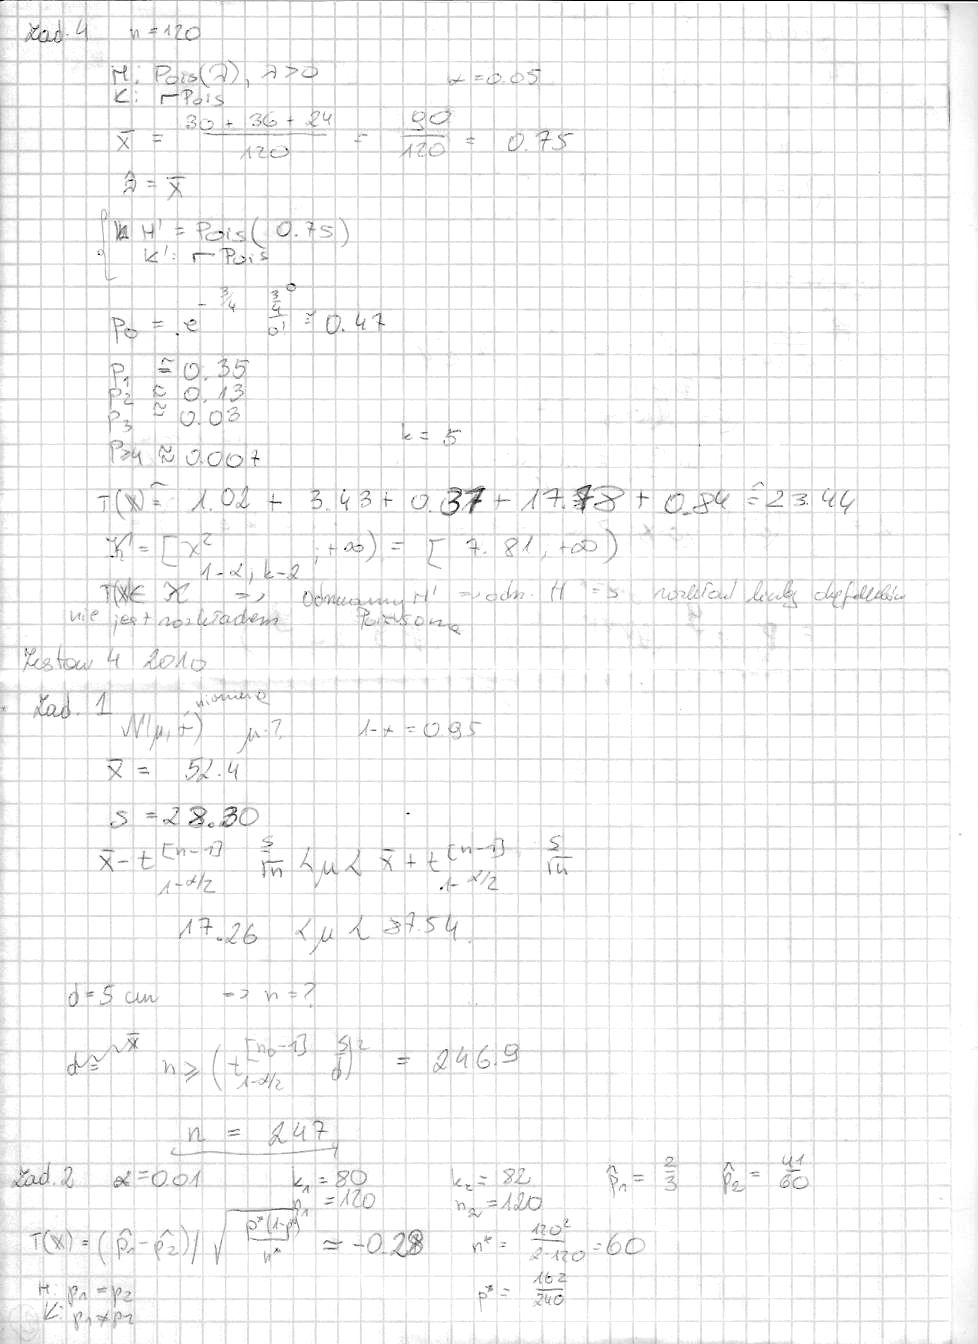 Zad. 4 n = 120
H: Pois(λ), λ>0 α = 0.05
K: ¬Pois
x̄ = (30 + 36 + 24)/120 = 90/120 = 0.75
λ̂ = x̄
H' = Pois(0.75)
K': ¬Pois
p₀ = e^(-3/4) (3/4)⁰/0! ≈ 0.47
p₁ ≈ 0.35
p₂ ≈ 0.13
p₃ ≈ 0.03
k = 5
p≥4 ≈ 0.007
T(x) = 1.02 + 3.43 + 0.37 + 17.78 + 0.84 = 23.44
K = [χ²_(1-α, k-2); +∞) = [7.81, +∞)
T(x) ∈ K => Odrzucamy H' => odn. H => rozkład liczby
nie jest rozkładem Poissona
Zestaw 4 2010
Zad. 1
N(μ, σ) μ? 1-α = 0.95
x̄ = 52.4
s = 28.30
x̄ - t^[n-1]_(1-α/2) s/√n < μ < x̄ + t^[n-1]_(1-α/2) s/√n
17.26 < μ < 87.54
d = 5 cm => n = ?
n ≥ (t^[n₀-1]_(1-α/2) s/d)² = 246.9
n = 247
Zad. 2 α = 0.01 k₁ = 80 k₂ = 82 p̂₁ = 2/3 p̂₂ = 41/60
n₁ = 120 n₂ = 120
T(x) = (p̂₁ - p̂₂) / √(p*(1-p*)/n*) ≈ -0.28 n* = 120²/(2·120) = 60
H: p₁ = p₂ p* = 162/240
K: p₁ ≠ p₂